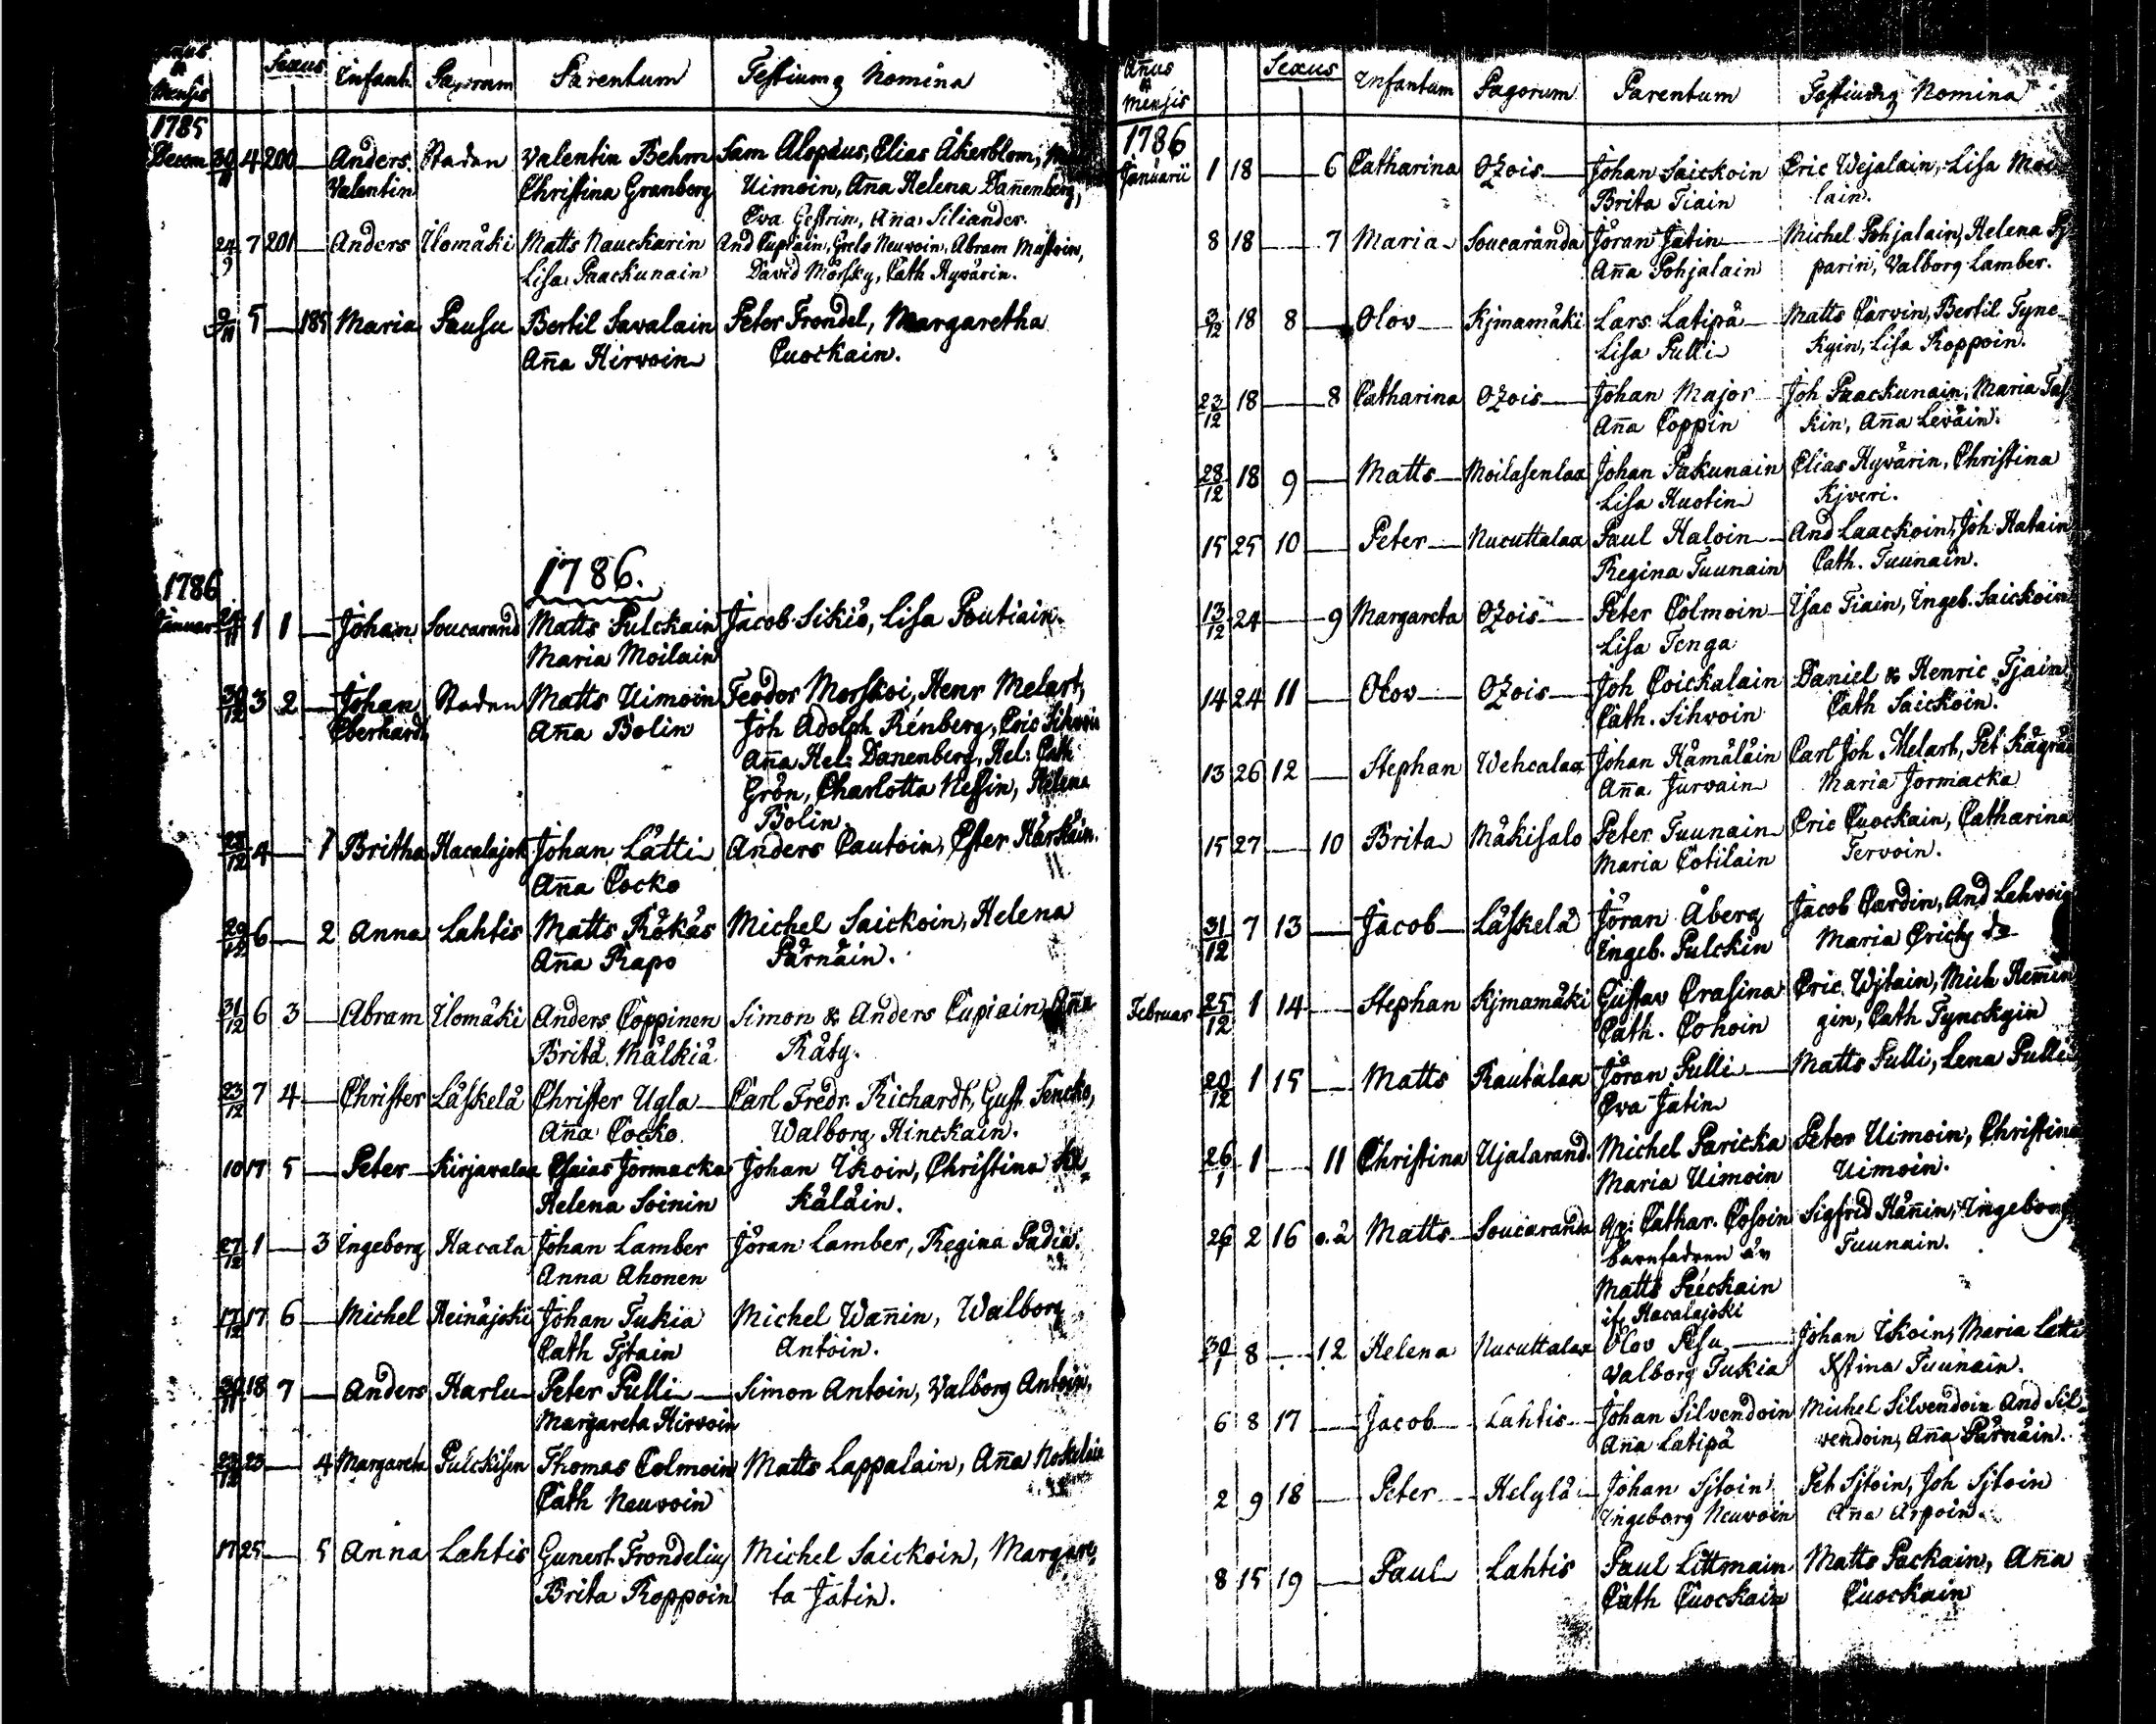 Mensis Sexus Infant. Pagorum Parentum Testiumq Nomina
1785
Decem 30/11 4 200 — Anders Staden Valentin Behm Sam Alopäus, Elias Åkerblom,
Valentin Christina Granberg Uimoin, Aña Helena Dañenberg,
Eva Gestrin, Aña Siliander.
24/9 7 201 — Anders Ilomäki Matts Nauckarin And Cupiain, Greta Neuvoin, Abram Mustoin,
Lisa Paackunain David Mörsky, Cath Hyvärin.
5 — 185 Maria Pausu Bertil Savalain Peter Frondel, Margaretha
Aña Hirvoin Cuockain.
1786.
1786
Januar 24/11 1 1 — Johan Soucarand Matts Pulckain Jacob Sikiö, Lisa Poutiain.
Maria Moilain
30/12 3 2 — Johan Staden Matts Uimoin Feodor Morskoi, Henr Melart,
Eberhardt Aña Bolin Joh Adolph Renberg, Eric Sihvoin
Aña Hel: Danenberg, Hel: Cath
Grön, Charlotta Nessin, Helena
Bolin.
23/12 4 — 1 Britha Hacalajok Johan Lätti Anders Cautoin, Ester Härkäin.
Aña Cocko
29/12 6 — 2 Anna Lahtis Matts Räkäs Michel Saickoin, Helena
Aña Rapo Pärnäin.
31/12 6 3 — Abram Ilomäki Anders Coppinen Simon & Anders Cupiain, Aña
Brita Mälkiä Räty.
23/12 7 4 — Christer Läskelä Christer Ugla — Carl Fredr. Richardt, Gust Tencko,
Aña Cocko. Walborg Hinckain.
10 17 5 — Peter Kirjavalax Esaias Jormacka Johan Ikoin, Christina
Helena Soinin käläin.
27/12 1 — 3 Ingeborg Hacala Johan Lamber Jöran Lamber, Regina Padia.
Anna Ahonen
17/12 17 6 — Michel Reinäjoki Johan Tukia Michel Wañin, Walborg
Cath Tjtain Antoin.
30/11 18 7 — Anders Harlu Peter Pulli — Simon Antoin, Valborg Antoin,
Margareta Hirvoin
23/12 23 — 4 Margareta Pulckisen Thomas Colmoin Matts Lappalain, Aña Noskelain
Cath Neuvoin
17 25 — 5 Anna Lahtis Gunert Frondelius Michel Saickoin, Margare
Brita Roppoin ta Jätin.
Añus & Mensis Sexus Infantum Pagorum Parentum Testiumq Nomina
1786
Januarii 1 18 — 6 Catharina Ozois — Johan Saickoin Eric Wejalain, Lisa Moi
Brita Tiain lain.
8 18 — 7 Maria Soucaranda Jöran Jätin Michel Pohjalain, Helena
Aña Pohjalain parin, Valborg Lamber.
3/12 18 8 — Olov Kjmamäki Lars Latipä Matts Carvin, Bertil Tync
Lisa Pulli kyin, Lisa Roppoin.
23/12 18 — 8 Catharina Ozois — Johan Major Joh Paackunain, Maria Tas
Aña Coppin kin, Aña Leväin.
28/12 18 9 — Matts Moilasenlax Johan Pakunain Elias Hyvärin, Christina
Lisa Huotin Kjveri.
15 25 10 — Peter Nucuttalax Paul Haloin And Laackoin, Joh Hatain
Regina Tuunain Cath. Tuunain.
13/12 24 — 9 Margareta Ozois — Peter Colmoin Isac Tiain, Ingeb. Saickoin
Lisa Tenga
14 24 11 — Olov Ozois — Joh Coickalain Daniel & Henric Tjain
Cath. Sihvoin Cath Saickoin.
13 26 12 — Stephan Wehcalax Johan Hämäläin Carl Joh Melart, Pet Kägrä
Aña Jurvain Maria Jormacka
15 27 — 10 Brita Mäkisalo Peter Tuunain Eric Cuockain, Catharina
Maria Cotilain Tervoin.
31/12 7 13 — Jacob Läskelä Jöran Åberg Jacob Cardin, And Lahvoin
Ingeb. Pulckin Maria Erich
Februar 25/12 1 14 — Stephan Kjmamäki Gustav Erasina Eric Wjtain, Mich Remin
Cath. Cohoin gin, Cath Tynckyin
20/12 1 15 — Matts Rautalax Jöran Pulli — Matts Pulli, Lena Pulli
Eva Jätin
26/1 1 — 11 Christina Ujalarand. Michel Paricka Peter Uimoin, Christina
Maria Uimoin Uimoin.
26/1 2 16 o. ä Matts Soucaranda Cathar. Cosoin Sigfrid Häñin, Ingeborg
barnfadren är Tuunain.
Matts Peeckain
ifr Hacalajoki
30/1 8 — 12 Helena Nucuttalax Olov Pesu — Johan Ikoin, Maria Lätti
Valborg Tukia Xstina Tuunain.
6 8 17 — Jacob Lahtis Johan Silvendoin Michel Silvendoin And Sil
Aña Latipä vendoin, Aña Pärnäin.
2 9 18 — Peter Helylä Johan Sjtoin Pet Sjtoin, Joh Sjtoin
Ingeborg Neuvoin Aña Arpoin.
8 15 19 — Paul Lahtis Paul Littmain Matts Packain, Aña
Cath Cuockain Cuockain